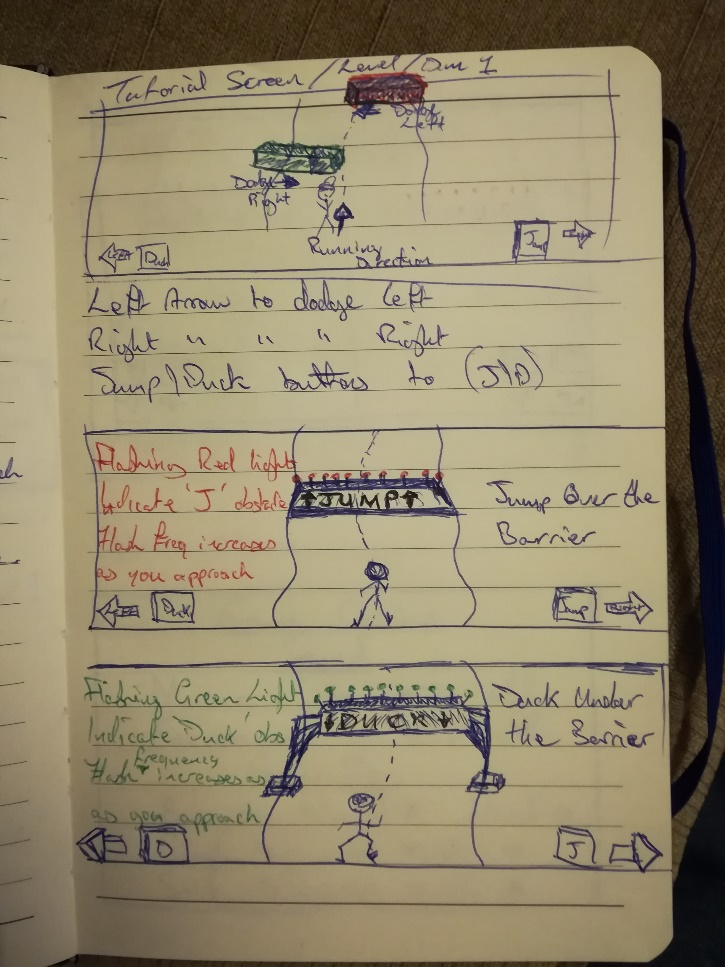 Tutorial Screen / Level / Dem 1
Dodge
Left
Dodge
Right
Running
Direction
Duck
Jump
Left Arrow to dodge left
Right " " " Right
Jump/Duck buttons to (J/D)
Flashing Red light
Indicate 'J' obstacle
Flash freq increases
as you approach
JUMP
Jump Over the
Barrier
Duck
Jump
Flashing Green Light
Indicate 'Duck' obs
Flash frequency increases as
as you approach
DUCK
Duck Under
the Barrier
D
J